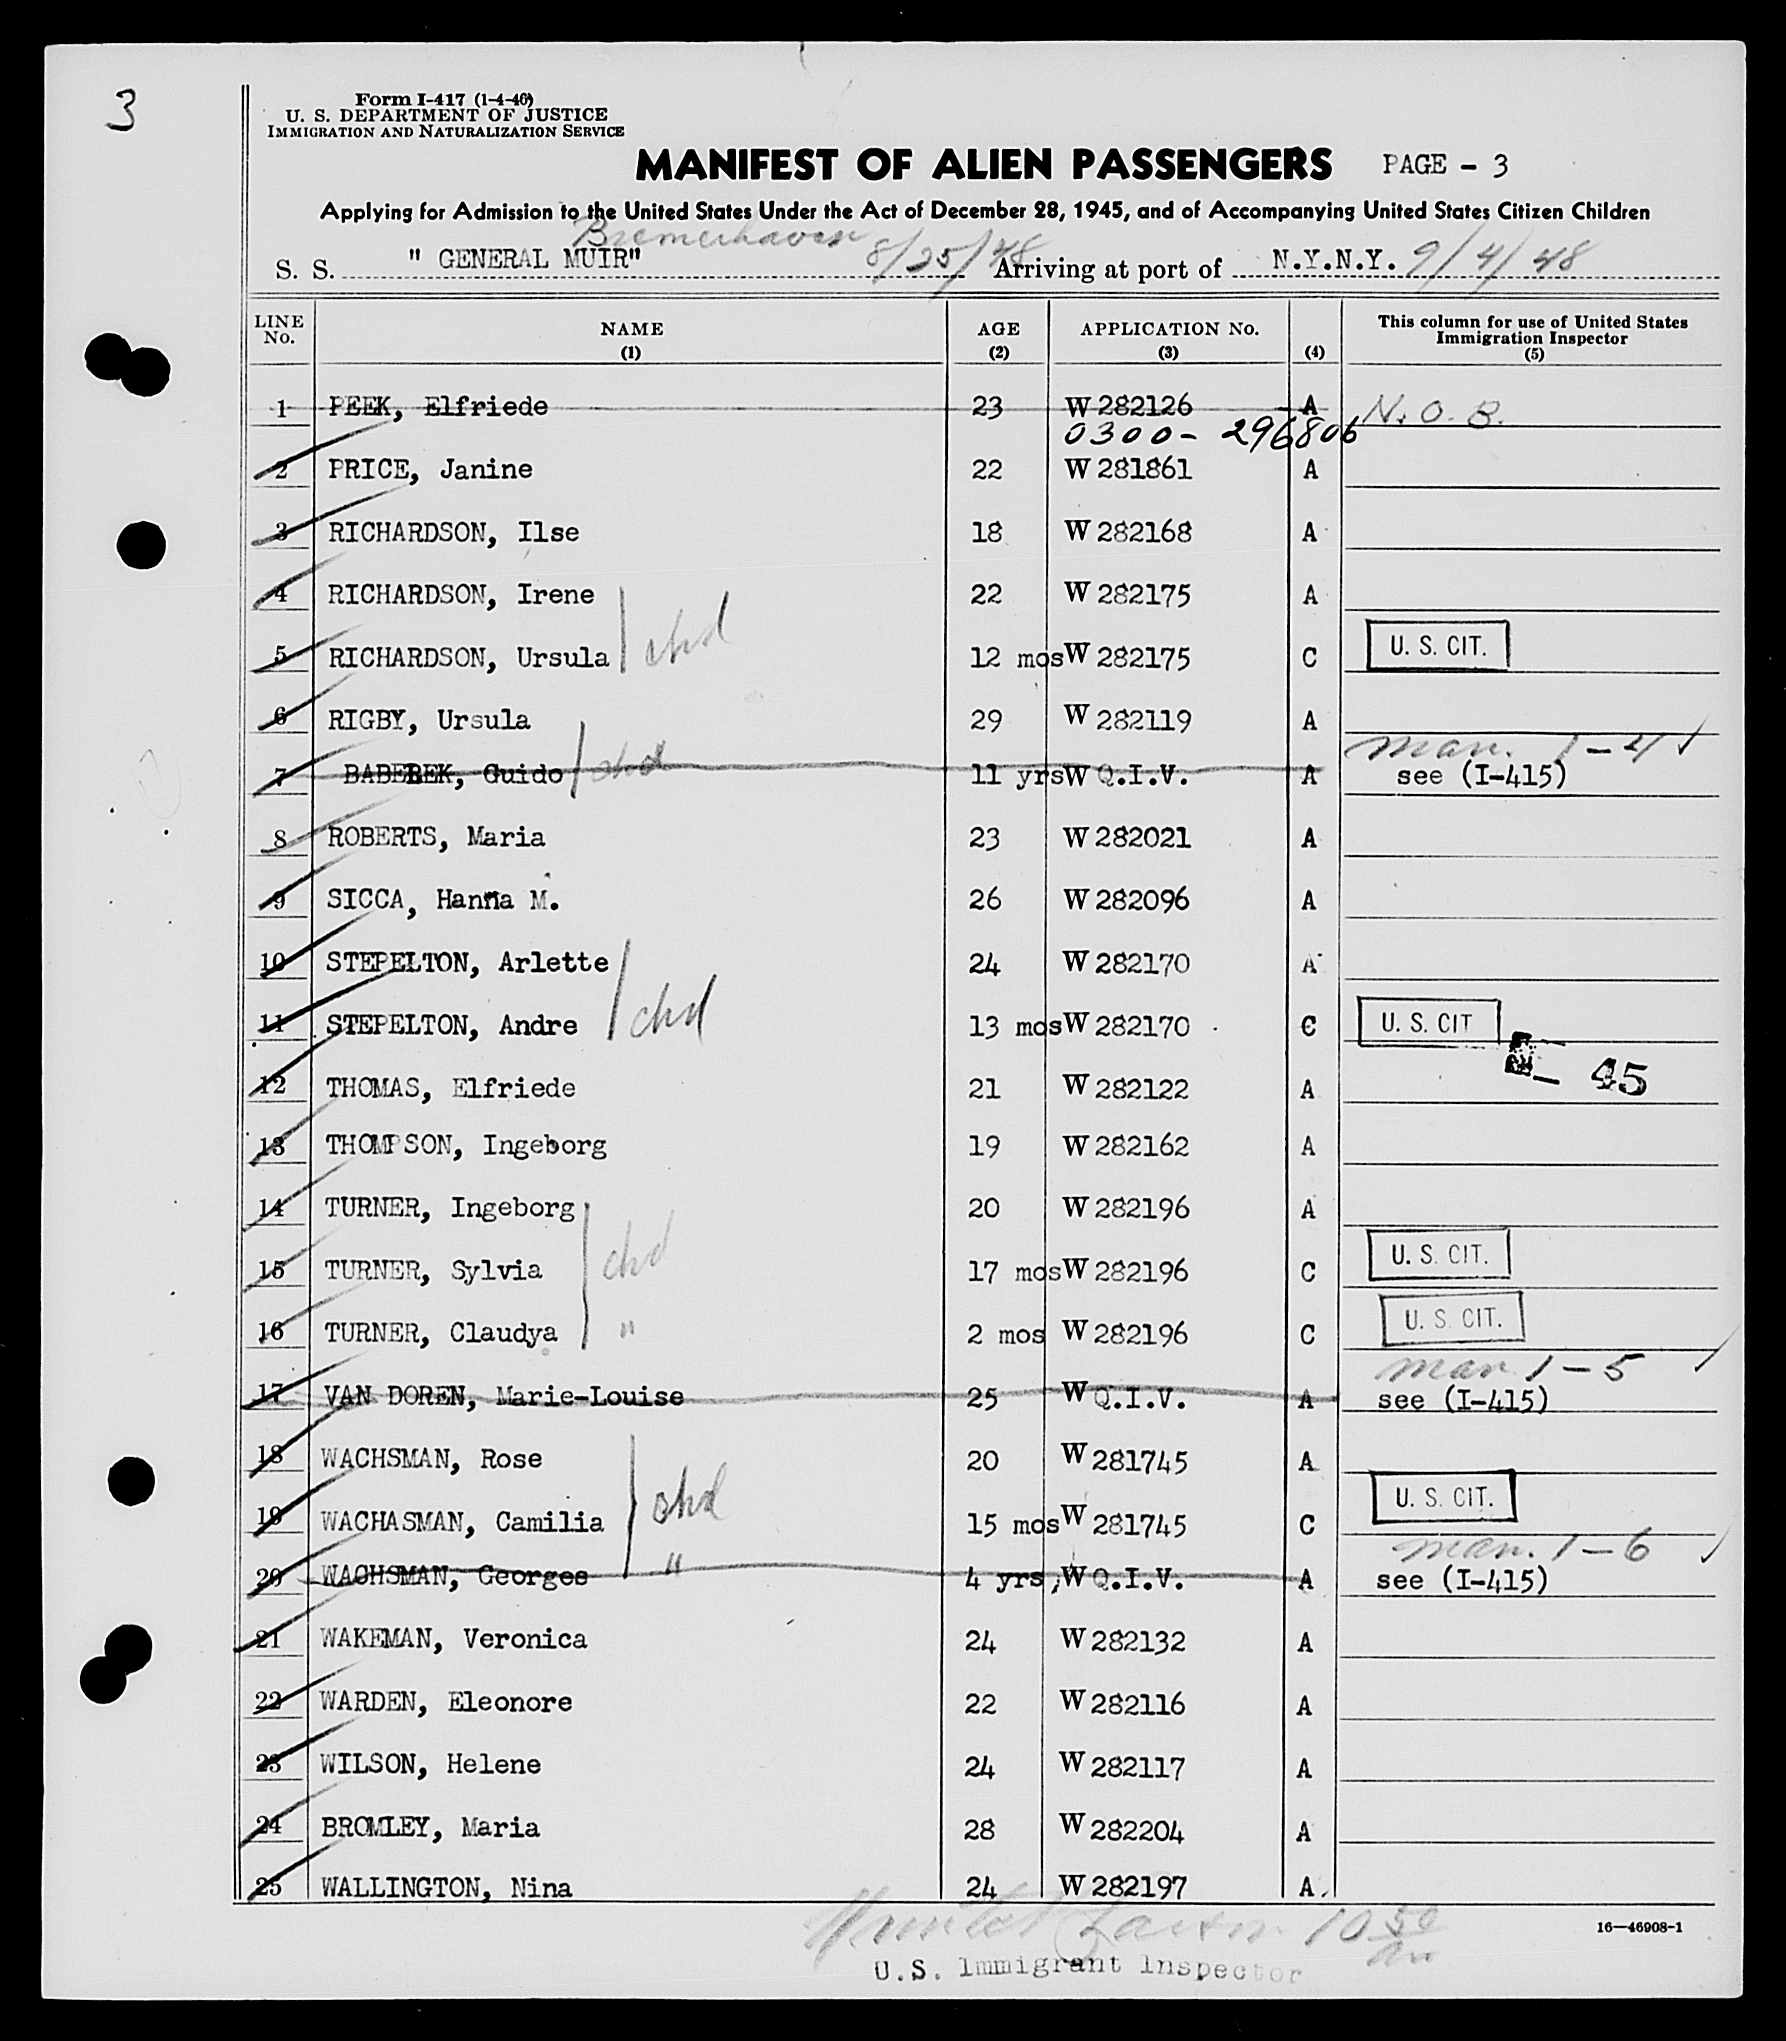 3
Form I-417 (1-4-46)
U. S. DEPARTMENT OF JUSTICE
IMMIGRATION AND NATURALIZATION SERVICE
MANIFEST OF ALIEN PASSENGERS PAGE - 3
Applying for Admission to the United States Under the Act of December 28, 1945, and of Accompanying United States Citizen Children
Bremerhaven
S. S. " GENERAL MUIR" 8/25/48 Arriving at port of N.Y.N.Y. 9/4/48
LINE No. NAME (1) AGE (2) APPLICATION No. (3) (4) This column for use of United States Immigration Inspector (5)
1 PEEK, Elfriede 23 W 282126 A N.O.B.
0300- 296806
2 PRICE, Janine 22 W 281861 A
3 RICHARDSON, Ilse 18 W 282168 A
4 RICHARDSON, Irene 22 W 282175 A
5 RICHARDSON, Ursula chd 12 mos W 282175 C U. S. CIT.
6 RIGBY, Ursula 29 W 282119 A
man. 1-4 ✓
7 BABEREK, Guido chd 11 yrs W Q.I.V. A see (I-415)
8 ROBERTS, Maria 23 W 282021 A
9 SICCA, Hanna M. 26 W 282096 A
10 STEPELTON, Arlette 24 W 282170 A
11 STEPELTON, Andre chd 13 mos W 282170 C U. S. CIT
45
12 THOMAS, Elfriede 21 W 282122 A
13 THOMPSON, Ingeborg 19 W 282162 A
14 TURNER, Ingeborg 20 W 282196 A
15 TURNER, Sylvia chd 17 mos W 282196 C U. S. CIT.
16 TURNER, Claudya " 2 mos W 282196 C U. S. CIT.
man 1-5 ✓
17 VAN DOREN, Marie-Louise 25 W Q.I.V. A see (I-415)
18 WACHSMAN, Rose 20 W 281745 A
19 WACHASMAN, Camilia chd 15 mos W 281745 C U. S. CIT.
man. 1-6 ✓
20 WACHSMAN, Georges " 4 yrs, W Q.I.V. A see (I-415)
21 WAKEMAN, Veronica 24 W 282132 A
22 WARDEN, Eleonore 22 W 282116 A
23 WILSON, Helene 24 W 282117 A
24 BROMLEY, Maria 28 W 282204 A
25 WALLINGTON, Nina 24 W 282197 A
10 50 am
16—46908-1
U.S. Immigrant Inspector